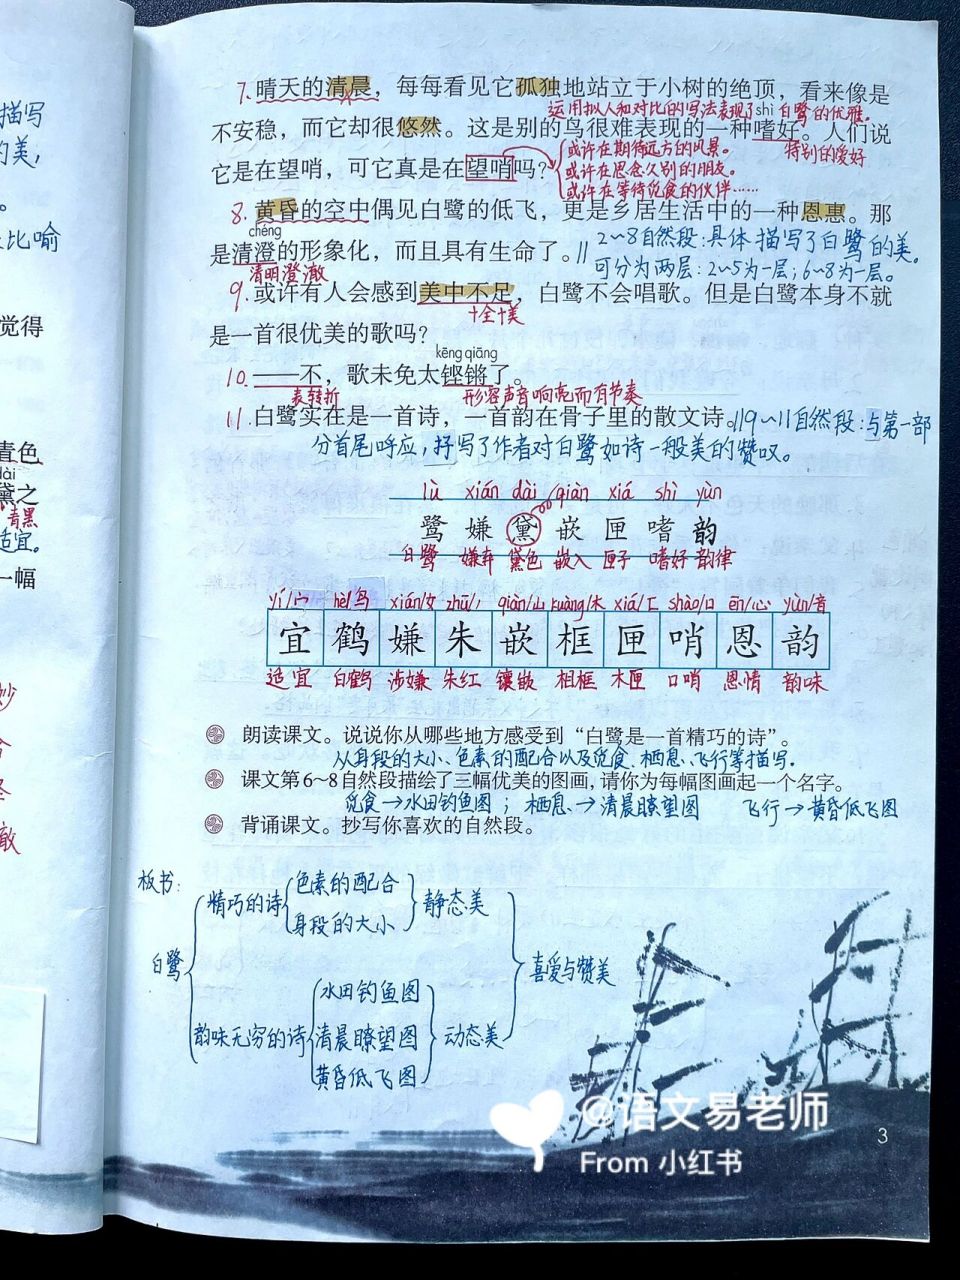 描写
的美,
。
比喻
觉得
青色
dài
黛之
青黑
适宜。
一幅
妙
敢
7. 晴天的清晨，每每看见它孤独地站立于小树的绝顶，看来像是
运用拟人和对比的写法表现了白鹭的优雅。
shì
不安稳，而它却很悠然。这是别的鸟很难表现的一种嗜好。人们说
特别的爱好
它是在望哨，可它真是在望哨吗？
或许在期待远方的风景。
或许在思念久别的朋友。
或许在等待觅食的伙伴……
8. 黄昏的空中偶见白鹭的低飞，更是乡居生活中的一种恩惠。那
chéng
是清澄的形象化，而且具有生命了。
清明澄澈
2~8自然段：具体描写了白鹭的美。
可分为两层：2~5为一层；6~8为一层。
9. 或许有人会感到美中不足，白鹭不会唱歌。但是白鹭本身不就
十全十美
是一首很优美的歌吗？
kēng qiāng
10. ——不，歌未免太铿锵了。
表转折 形容声音响亮而有节奏
11. 白鹭实在是一首诗，一首韵在骨子里的散文诗。
9~11自然段：与第一部
分首尾呼应，抒写了作者对白鹭如诗一般美的赞叹。
lù xián dài qiàn xiá shì yùn
鹭 嫌 黛 嵌 匣 嗜 韵
白鹭 嫌弃 黛色 嵌入 匣子 嗜好 韵律
yí/宀 hè/鸟 xián/女 zhū/丿 qiàn/山 kuàng/木 xiá/匚 shào/口 ēn/心 yùn/音
宜 鹤 嫌 朱 嵌 框 匣 哨 恩 韵
适宜 白鹤 涉嫌 朱红 镶嵌 相框 木匣 口哨 恩情 韵味
朗读课文。说说你从哪些地方感受到“白鹭是一首精巧的诗”。
从身段的大小、色素的配合以及觅食、栖息、飞行等描写。
课文第6~8自然段描绘了三幅优美的图画，请你为每幅图画起一个名字。
觅食→水田钓鱼图；栖息→清晨瞭望图 飞行→黄昏低飞图
背诵课文。抄写你喜欢的自然段。
板书：
白鹭
精巧的诗
色素的配合
身段的大小
静态美
韵味无穷的诗
水田钓鱼图
清晨瞭望图
黄昏低飞图
动态美
喜爱与赞美
@语文易老师
From 小红书
3